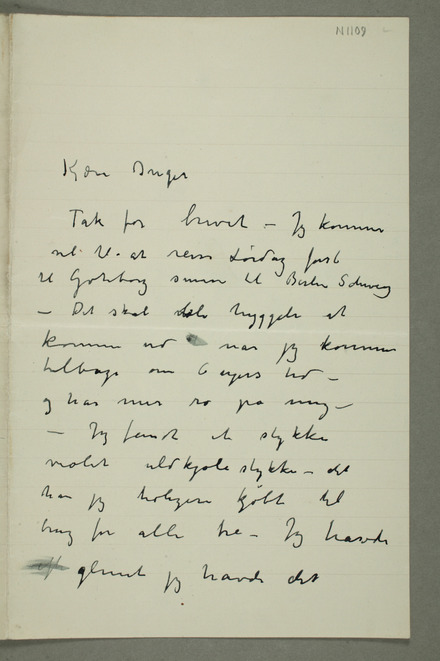 N1109
Kære Inger
Tak for brevet – Jeg kommer
vel til at reise Lørdag først
til Göteborg senere til Berlin Schweiz
– Det skal blive hyggeligt at
komme ud når jeg kommer
tilbage om 6 ugers tid –
og har mer ro på mig –
– Jeg fandt et stykke
violet uldkjole stykke – det
har jeg købt til
brug for alle tre – Jeg havde
glemt jeg havde det